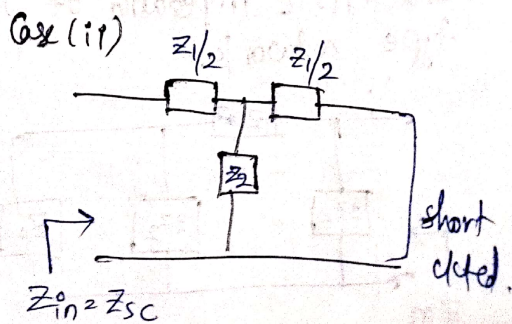 Case (ii)
Z1/2
Z1/2
Z2
short
ckted.
Zin = Zsc